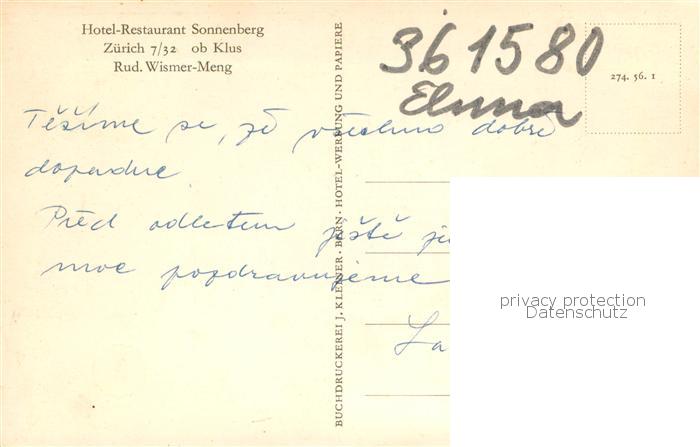 Hotel-Restaurant Sonnenberg
Zürich 7/32 ob Klus
Rud. Wismer-Meng
361580
274. 56. 1
Těšíme se, že všechno dobře
dopadne.
Před odletem ještě
moc pozdravujeme
La
BUCHDRUCKEREI J. KLEINER · BERN · HOTEL-WERBUNG UND PAPIERE
privacy protection
Datenschutz